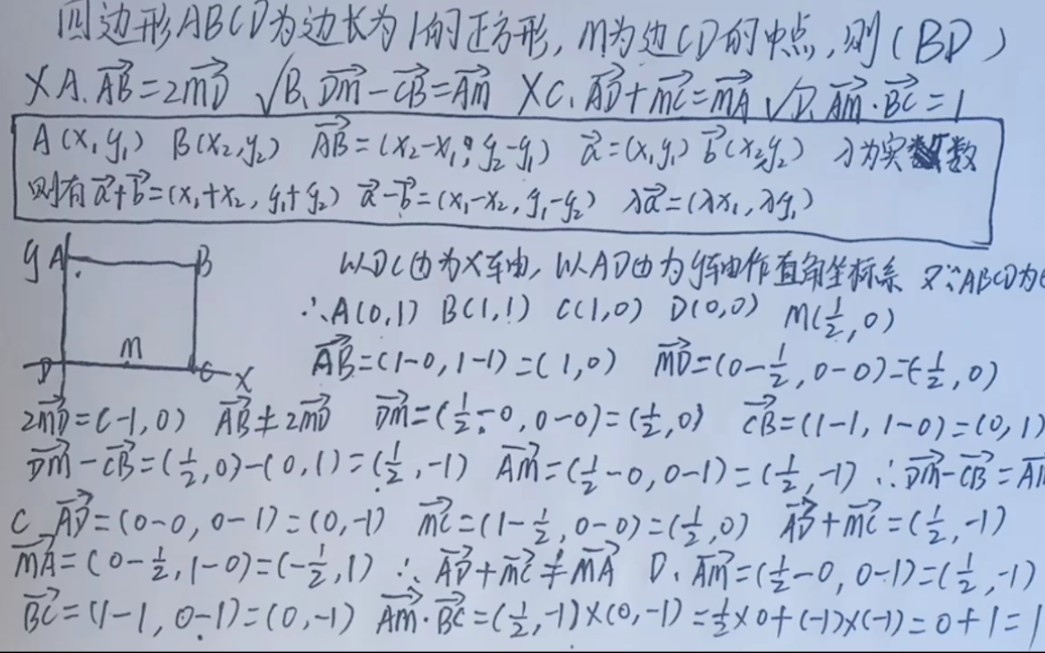 四边形ABCD为边长为1的正方形,M为边CD的中点,则(BD)
×A.AB→=2MD→ √B、DM→-CB→=AM→ ×C.AD→+MC→=MA→ √D.AM→·BC→=1
A(x₁y₁) B(x₂,y₂) AB→=(x₂-x₁,y₂-y₁) a→=(x₁y₁) b→(x₂y₂) λ为实数
则有a→+b→=(x₁+x₂, y₁+y₂) a→-b→=(x₁-x₂, y₁-y₂) λa→=(λx₁, λy₁)
y A B 以DC边为x轴,以AD边为y轴作直角坐标系 又∵ABCD为
∴A(0,1) B(1,1) C(1,0) D(0,0) M(1/2,0)
AB→=(1-0,1-1)=(1,0) MD→=(0-1/2,0-0)=(-1/2,0)
D M C x
2MD→=(-1,0) AB→≠2MD→ DM→=(1/2-0,0-0)=(1/2,0) CB→=(1-1,1-0)=(0,1)
DM→-CB→=(1/2,0)-(0,1)=(1/2,-1) AM→=(1/2-0,0-1)=(1/2,-1) ∴DM→-CB→=AM→
C AD→=(0-0,0-1)=(0,-1) MC→=(1-1/2,0-0)=(1/2,0) AD→+MC→=(1/2,-1)
MA→=(0-1/2,1-0)=(-1/2,1) ∴AD→+MC→≠MA→ D.AM→=(1/2-0,0-1)=(1/2,-1)
BC→=(1-1,0-1)=(0,-1) AM→·BC→=(1/2,-1)×(0,-1)=1/2×0+(-1)×(-1)=0+1=1